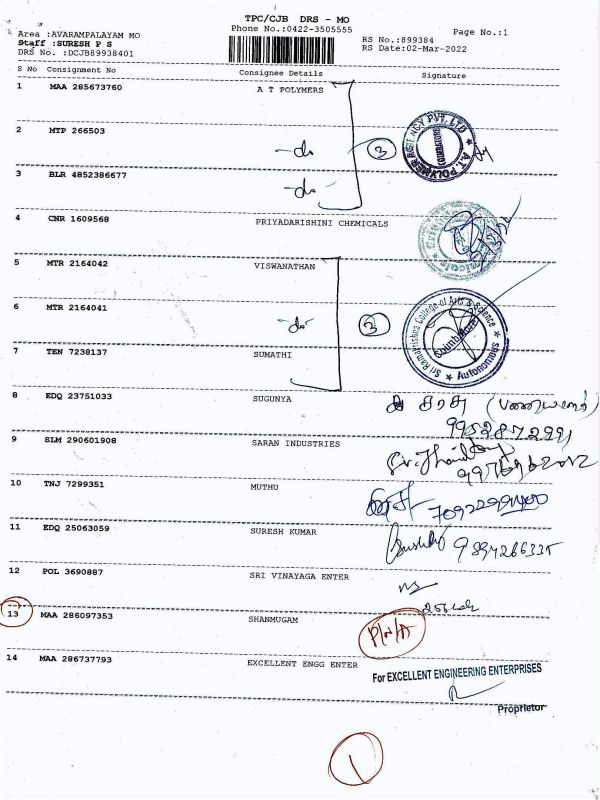 TPC/CJB DRS - MO
Area :AVARAMPALAYAM MO
Phone No.:0422-3505555
Page No.:1
Staff :SURESH P S
RS No.:899384
DRS No. :DCJB89938401
RS Date:02-Mar-2022
S No Consignment No Consignee Details Signature
1 MAA 285673760 A T POLYMERS
2 MTP 266503 -do
3
A.T. POLYMER AGENCY PVT. LTD
COIMBATORE
3 BLR 4852386677 -do
4 CNR 1609568 PRIYADARISHINI CHEMICALS
5 MTR 2164042 VISWANATHAN
6 MTR 2164041 -do
3
Sri Ramakrishna College of Arts & Science
Coimbatore
Autonomous
7 TEN 7238137 SUMATHI
8 EDQ 23751033 SUGUNYA
9952872991
9 SLM 290601908 SARAN INDUSTRIES
10 TNJ 7299351 MUTHU
11 EDQ 25063059 SURESH KUMAR
9894266335
12 POL 3690887 SRI VINAYAGA ENTER
13 MAA 286097353 SHANMUGAM P/N/A
14 MAA 286737793 EXCELLENT ENGG ENTER
For EXCELLENT ENGINEERING ENTERPRISES
Proprietor
1